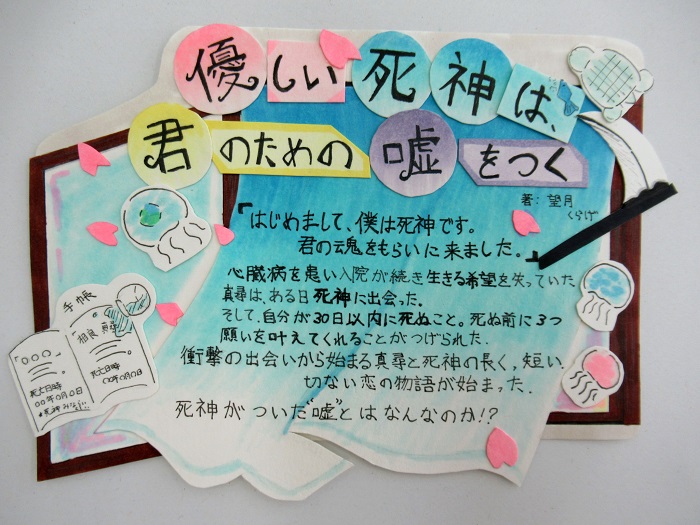 優しい死神は、
君のための嘘をつく
著：望月
くらげ
「はじめまして、僕は死神です。
君の魂をもらいに来ました。」
心臓病を患い入院が続き生きる希望を失っていた
真尋は、ある日死神に出会った。
そして、自分が30日以内に死ぬこと。死ぬ前に3つ
願いを叶えてくれることがつげられた.
衝撃の出会いから始まる真尋と死神の長く,短い.
切ない恋の物語が始まった.
死神がついた“嘘”とはなんなのか!?
手帳
「○○○。
相良
死亡日時
○○年○月○日
死亡日時
○○年○月○日